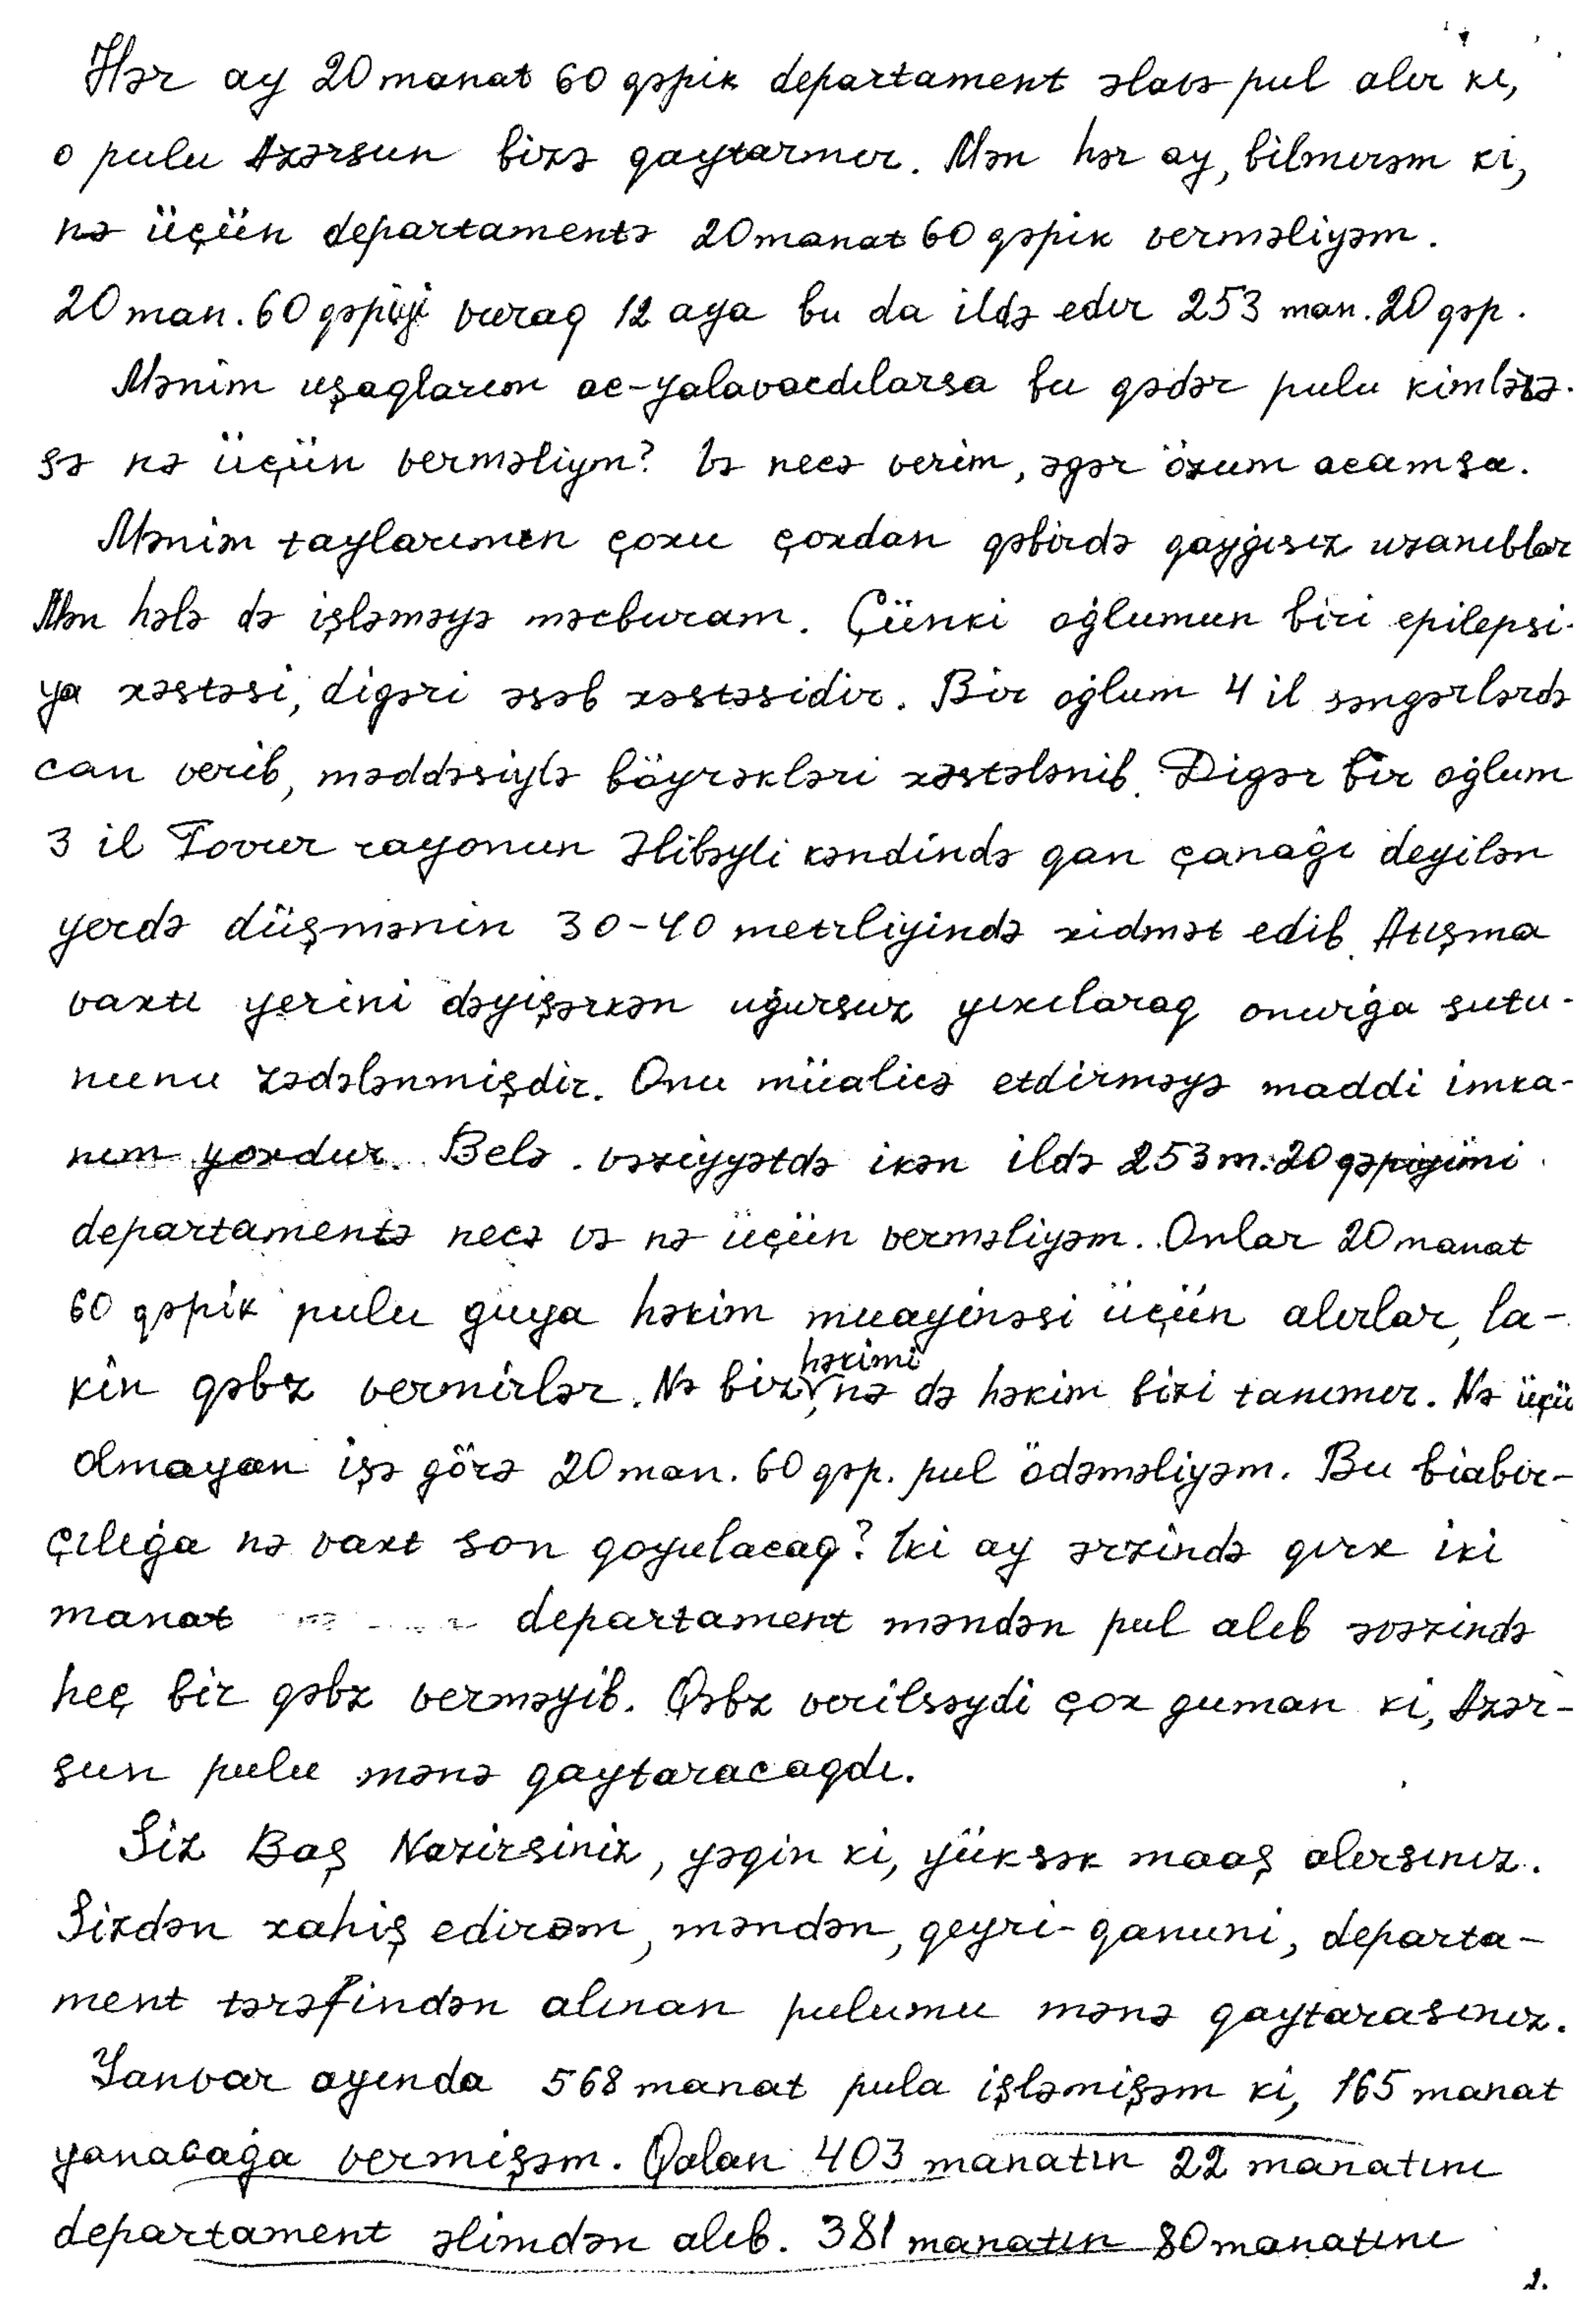 Hər ay 20 manat 60 qəpik departament əlavə pul alır ki,
o pulu Azərsun bizə qaytarmır. Mən hər ay, bilmirəm ki,
nə üçün departamentə 20 manat 60 qəpik verməliyəm.
20 man. 60 qəpiyi vuraq 12 aya bu da ildə edir 253 man. 20 qəp.
Mənim uşaqlarım ac-yalavacdılarsa bu qədər pulu kimlərə-
sə nə üçün verməliym? Və necə verim, əgər özum acamsa.
Mənim taylarımın çoxu çoxdan qəbirdə qayğısız uzanıblar
Mən hələ də işləməyə məcburam. Çünki oğlumun biri epilepsi-
ya xəstəsi, digəri əsəb xəstəsidir. Bir oğlum 4 il səngərlərdə
can verib, məddəsiylə böyrəkləri xəstələnib. Digər bir oğlum
3 il Tovuz rayonun Əlibəyli kəndində qan çanağı deyilən
yerdə düşmənin 30-40 metrliyində xidmət edib. Atışma
vaxtı yerini dəyişərkən uğursuz yıxılaraq onurğa sutu-
nunu zədələnmişdir. Onu müalicə etdirməyə maddi imka-
nım yoxdur. Belə vəziyyətdə ikən ildə 253 m. 20 qəpiyimi
departamentə necə və nə üçün verməliyəm. Onlar 20 manat
60 qəpik pulu guya həkim muayinəsi üçün alırlar, la-
kin qəbz vermirlər. Nə biz həkimi, nə də həkim bizi tanımır. Nə üçü
olmayan işə görə 20 man. 60 qəp. pul ödəməliyəm. Bu biabır-
çılığa nə vaxt son qoyulacaq? İki ay ərzində qırx iki
manat departament məndən pul alıb əvəzində
heç bir qəbz verməyib. Qəbz verilsəydi çox guman ki, Azər-
sun pulu mənə qaytaracaqdı.
Siz Baş Nazirsiniz, yəqin ki, yüksək maaş alırsınız.
Sizdən xahiş edirəm, məndən, qeyri-qanuni, departa-
ment tərəfindən alınan pulumu mənə qaytarasınız.
Yanvar ayında 568 manat pula işləmişəm ki, 165 manat
yanacağa vermişəm. Qalan 403 manatın 22 manatını
departament əlimdən alıb. 381 manatın 80 manatını
2.